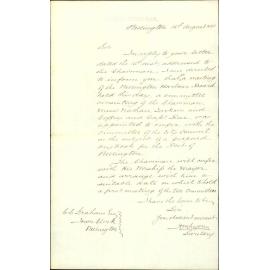 Wellington 16th August
Sir
In reply to your letter
dated the inst. addressed to
the Chairman, I am directed
to inform you that a meeting
of the Wellington Harbour Board
held this day a committee
consisting of the Chairman,
and
was
appointed to confer with the
Committee of the City Council
on the subject of a proposed
for the Port of
Wellington.
The Chairman will confer
with His Worship the Mayor
and arrange with him a
suitable date on which to hold
a first meeting of the Committee
I have the honor to be,
Sir
Your obedient servant
Secretary
C. C. Graham Esq
Town Clerk
Wellington